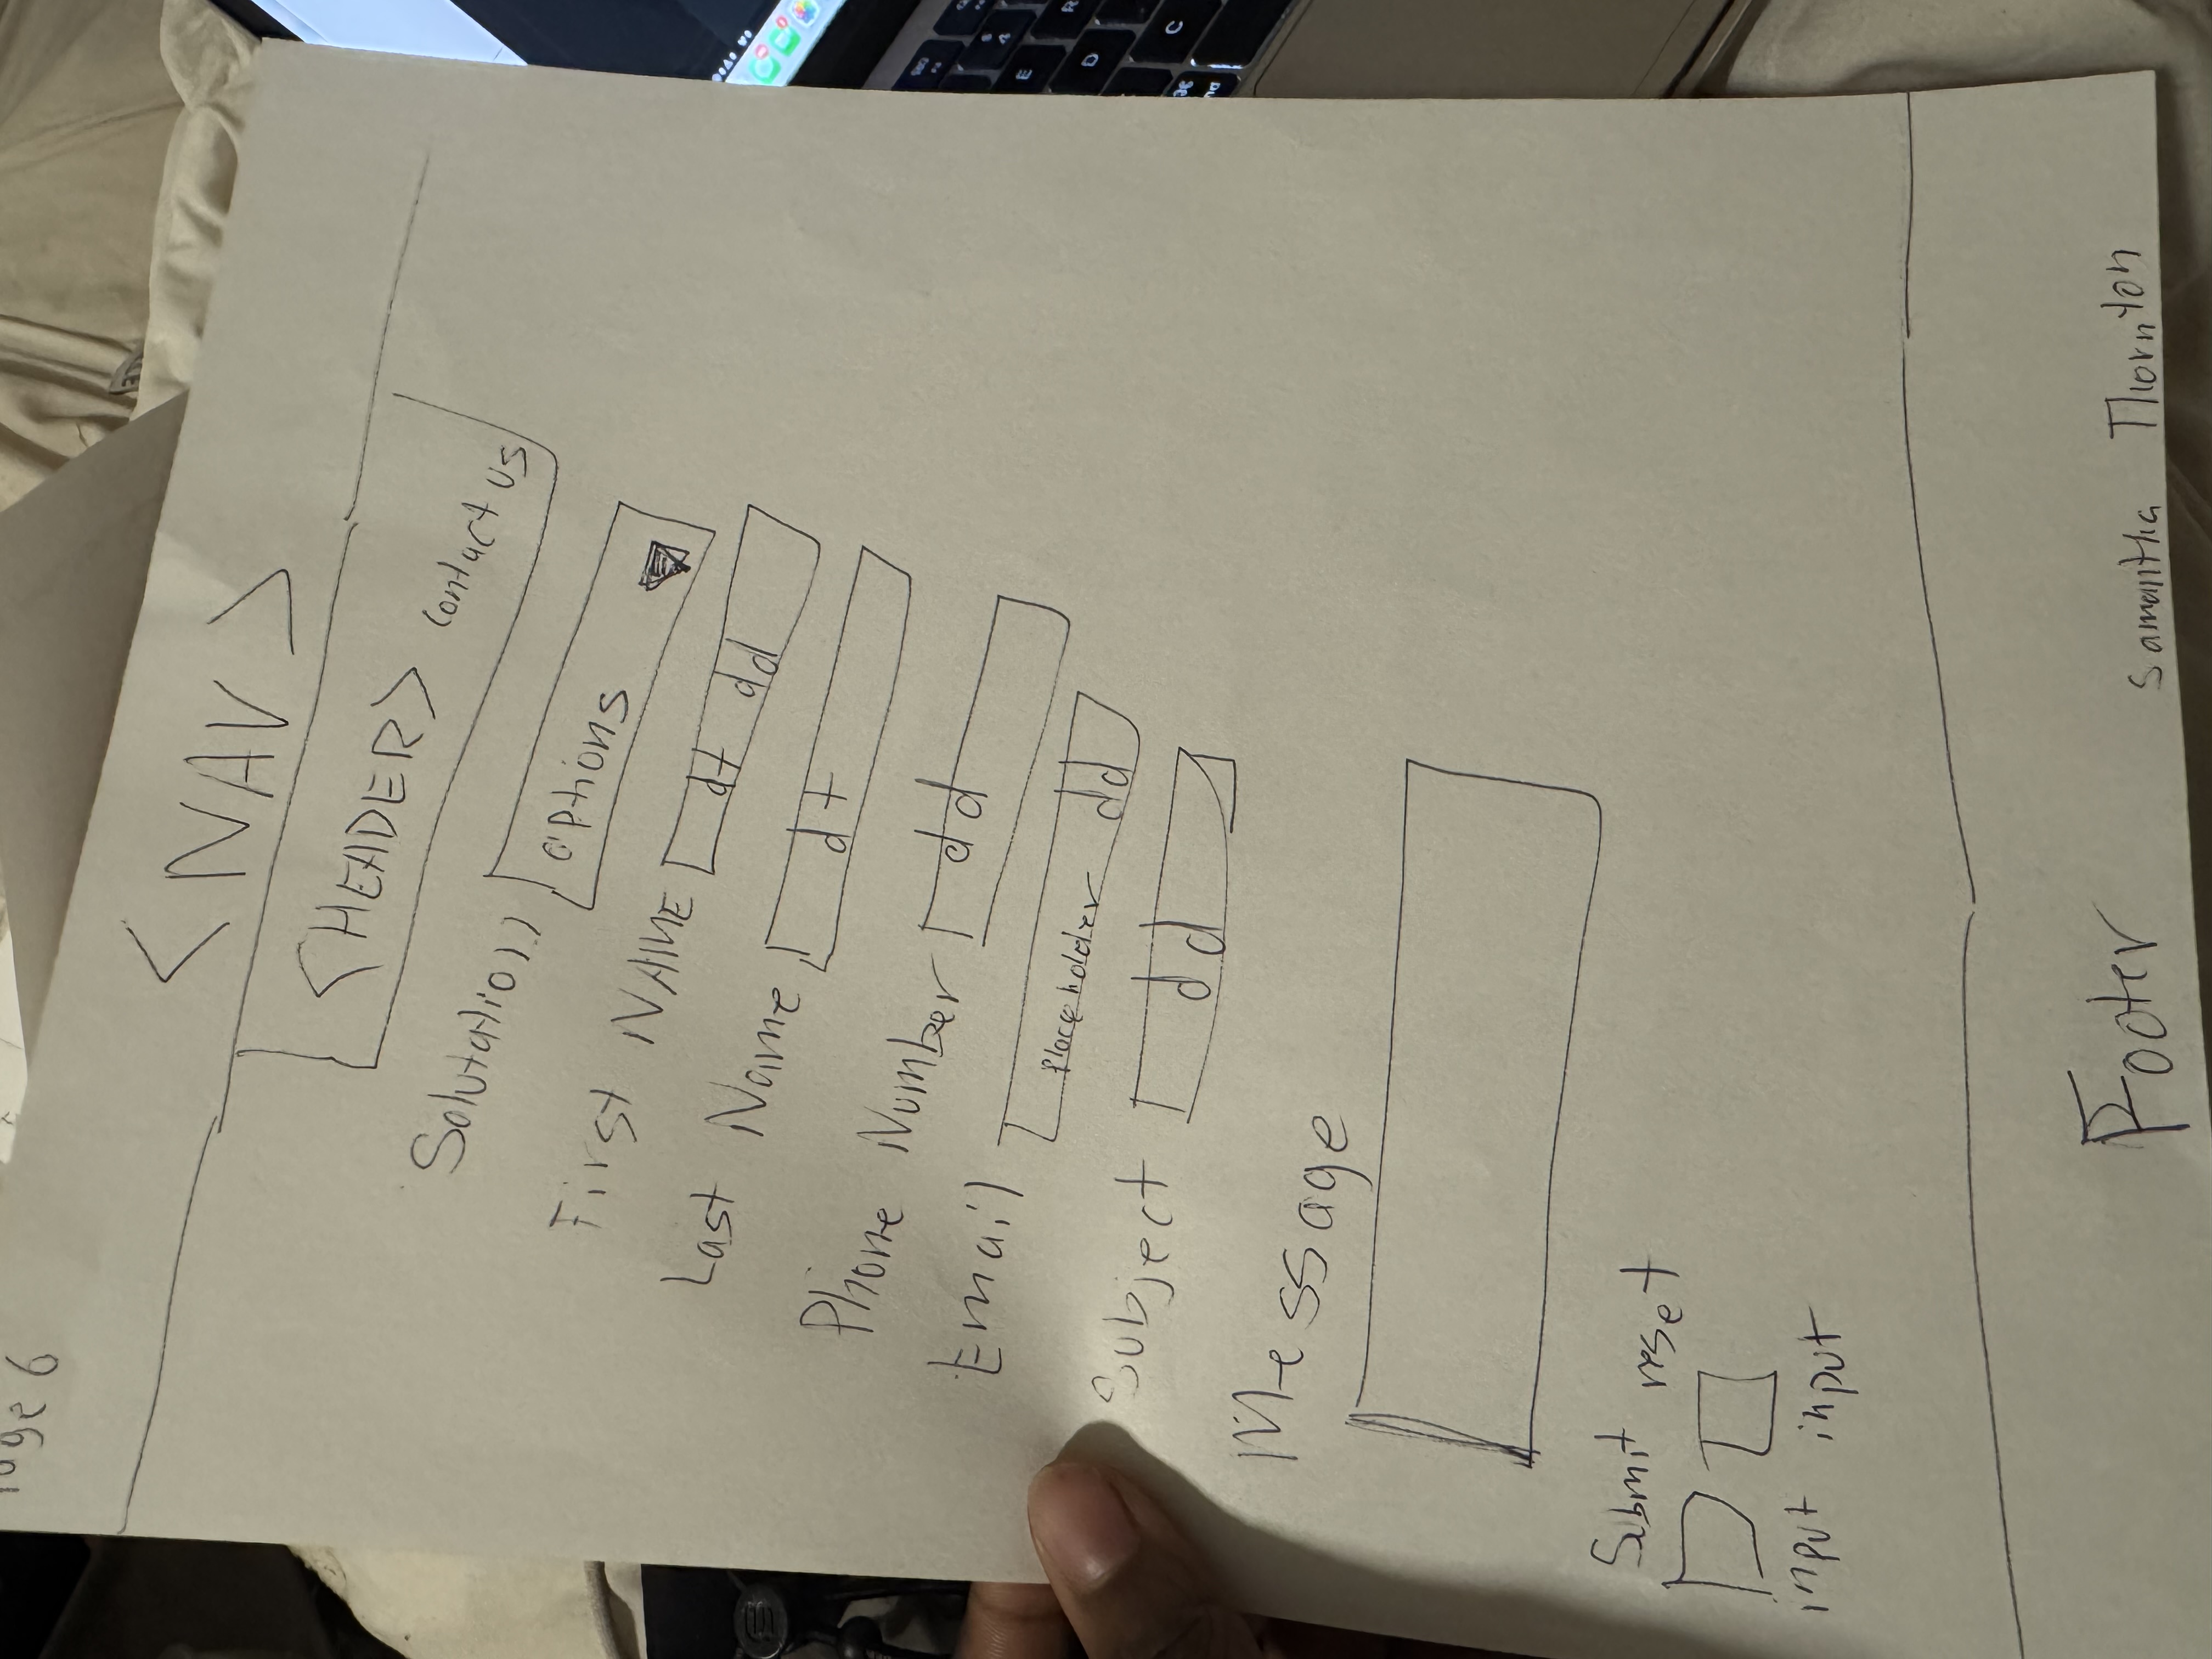 Page 6
< NAV >
<HEADER> contact us
Solutation options
First NAME dt dd
Last Name dt
Phone Number dd
Email placeholder dd
Subject dd
Message
Submit reset
input input
Footer Samantha Thornton